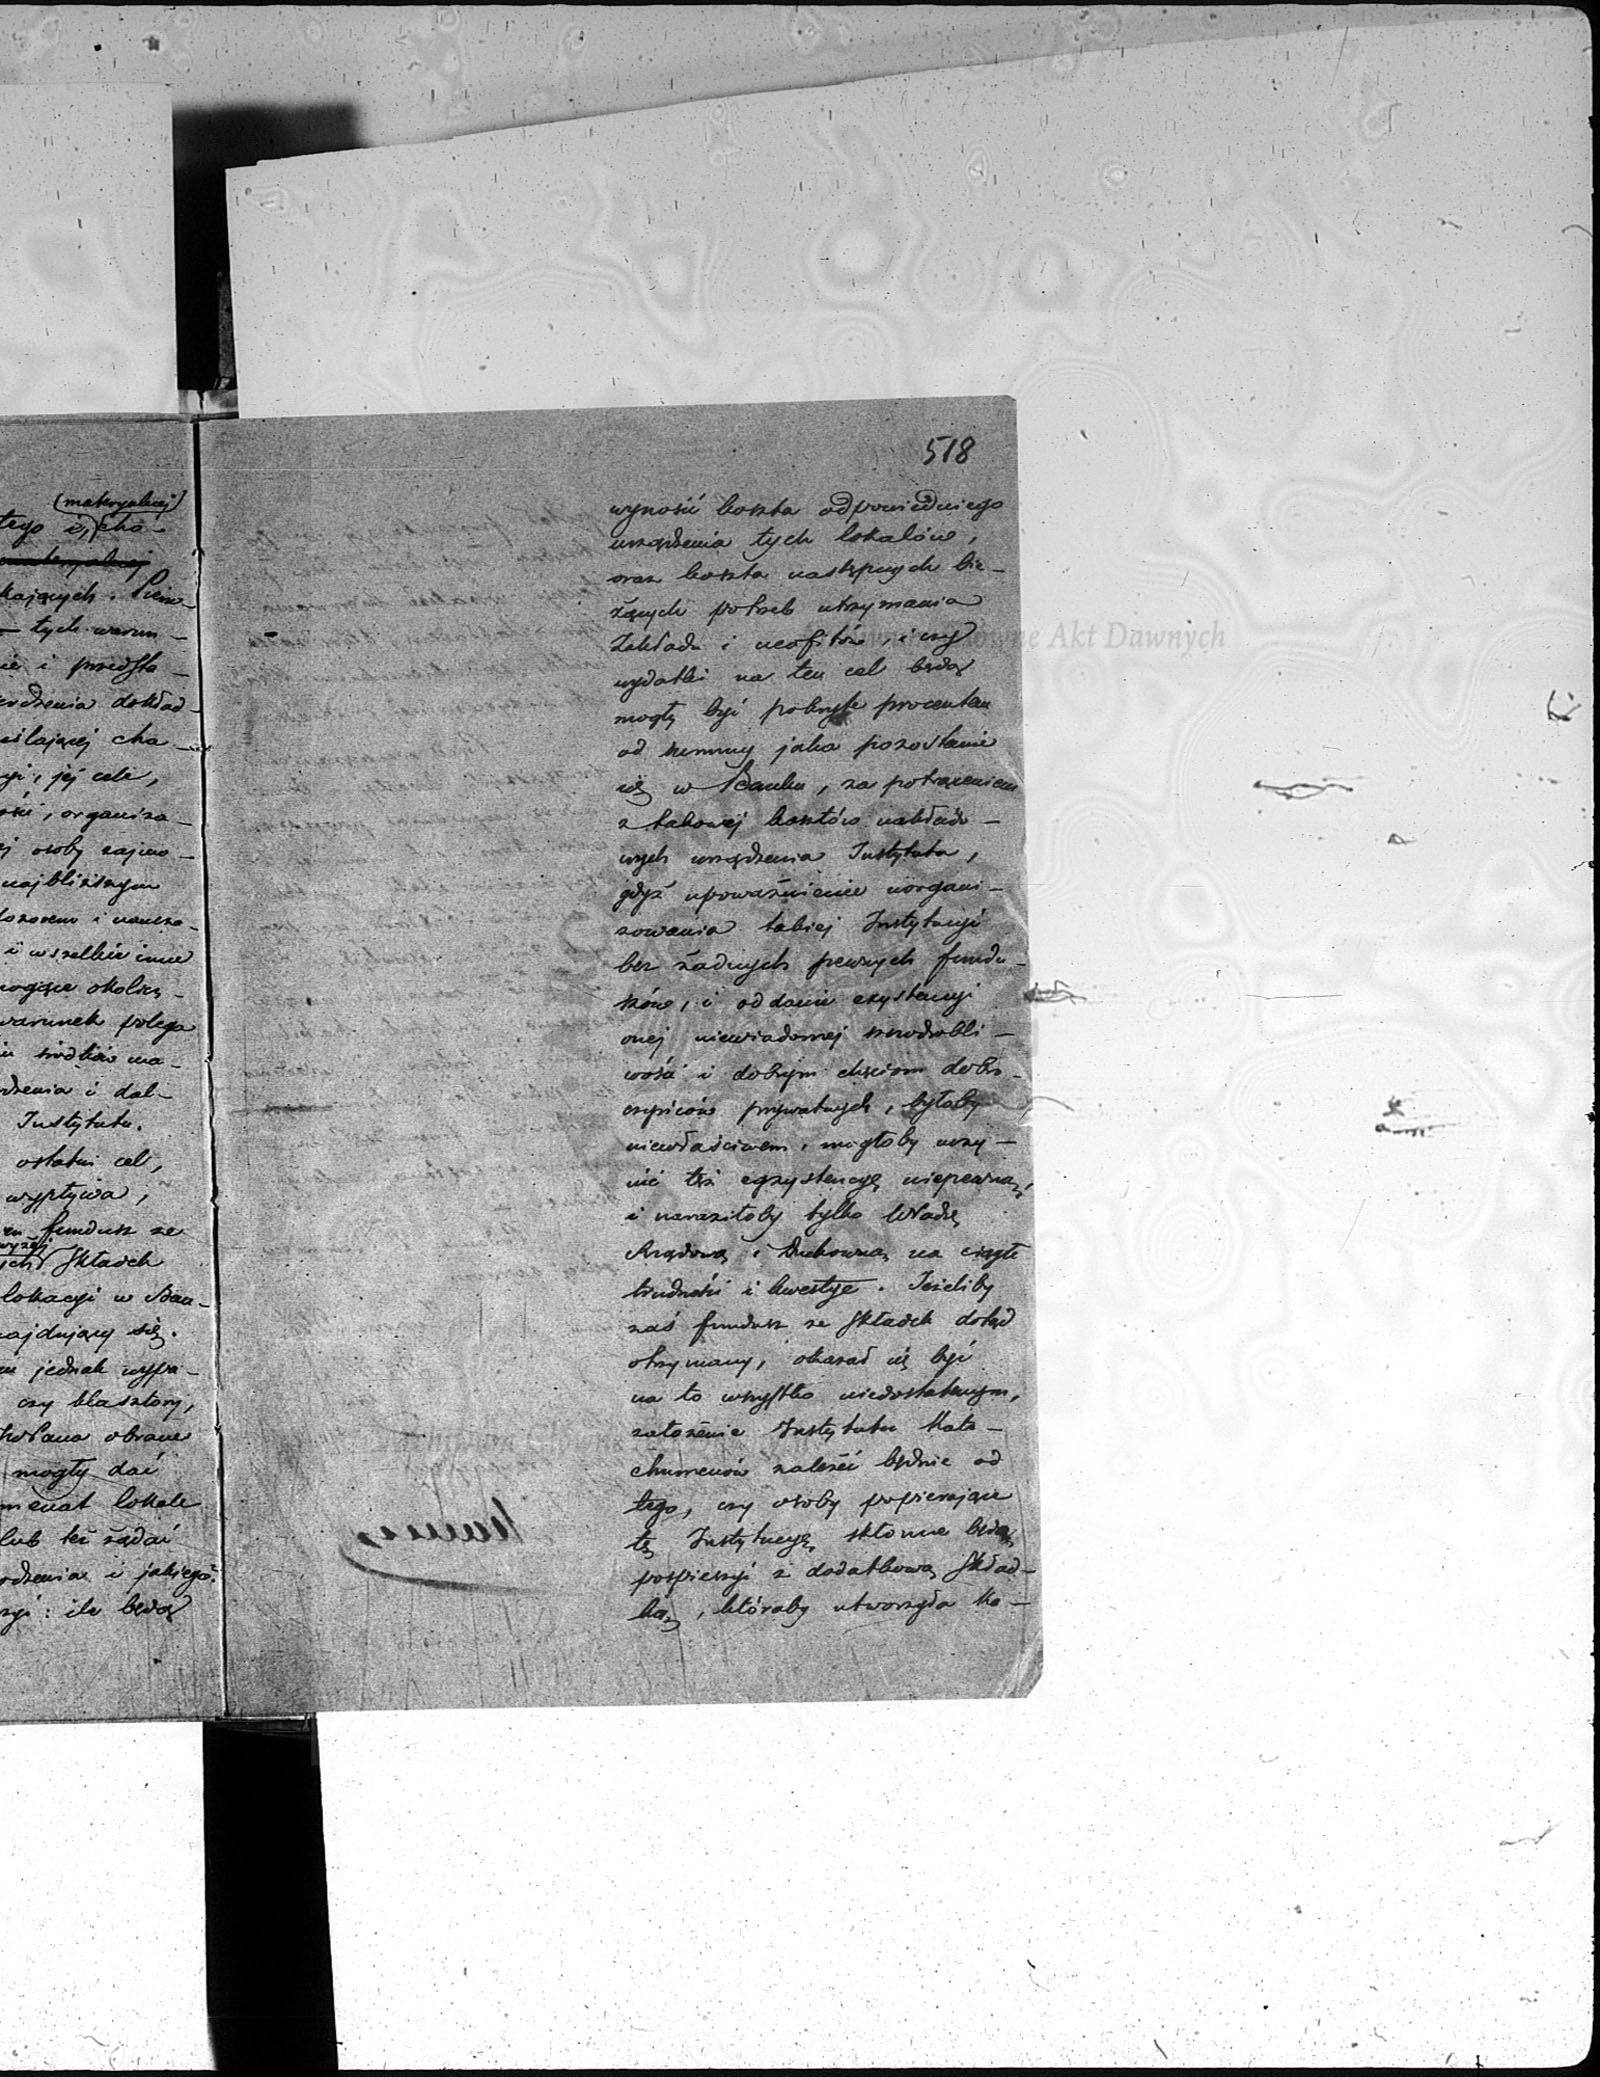 (materyalnej)
tego i, cha-
materyalnej
kających. Pierw-
tych warun-
ie i przedsta-
dokład-
cha-
jej cele,
organiza-
ej osoby zajmo-
najbliższym
dozorem i naucza-
i wszelkie inne
mogące okolicz-
warunek polega
środków ma-
dzenia i dal-
Instytutu.
ostatni cel,
wypływa,
fundusz ze
wyżej
Składek
lokacyi w Ban-
znajdujący się.
jednak wypa-
czy klasztory,
obrane
mogły dać
lokale
lub też żądać
i jakiegoś
ile będą
518
wynosić koszta odpowiedniego
urządzenia tych lokalów,
oraz koszta następnych bie-
żących potrzeb utrzymania
Zakładu i neofitów, i czy
wydatki na ten cel będą
mogły być pokryte procentem
od summy jaka pozostanie
się w Banku, za potrąceniem
z takowej kosztów nakłado-
wych urządzenia Instytutu,
gdyż upoważnienie uorgani-
zowania takiej Instytucyi
bez żadnych pewnych fundu-
szów, i oddanie exystencyi
onej niewiadomej szczodrobli-
wości i dobrym chęciom dobro-
czyńców prywatnych, byłoby
niewłaściwem, mogłoby uczy-
nić też egzystencyę niepewną,
i naraziłoby tylko Władzę
Rządową i Duchowną na ciągłe
trudności i kwestye. Jeżeliby
zaś fundusz ze Składek dotąd
otrzymany, okazał się być
na to wszystko niedostatecznym,
założenie Instytutu Kate-
chumenów zależeć będzie od
tego, czy osoby popierające
tę Instytucyę, skłonne będą
pospieszyć z dodatkową Skład-
ką, któraby utworzyła Ka-
Akt Dawnych